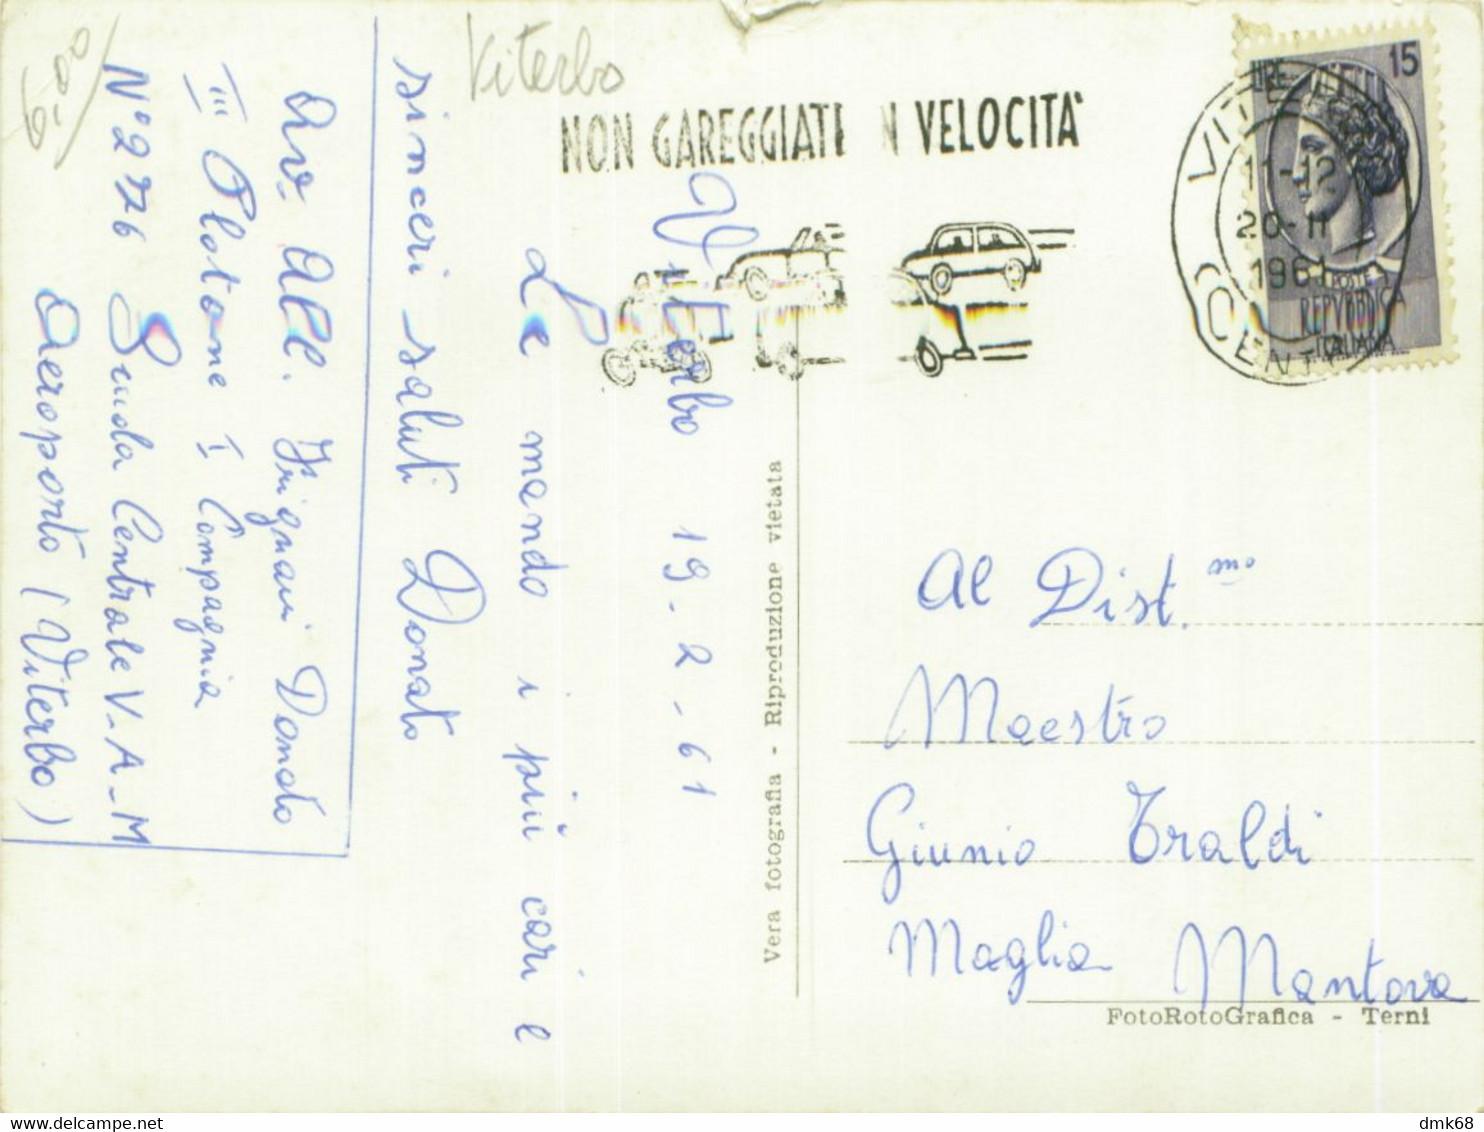 Viterbo
6,00
NON GAREGGIATE IN VELOCITÀ
LIRE 15
VITERBO
11-12
20-II
1961
CENTRO
POSTE
REPVBBLICA
ITALIANA
Viterbo 19-2-61
Le mando i più cari e
sinceri saluti Donato
Av. All. Frignani Donato
III Plotone I Compagnia
N° 276 Scuola Centrale V-A-M
Aeroporto (Viterbo)
Vera fotografia - Riproduzione vietata
Al Dist.mo
Maestro
Giunio Traldi
Maglia Mantova
FotoRotoGrafica - Terni
dmk68